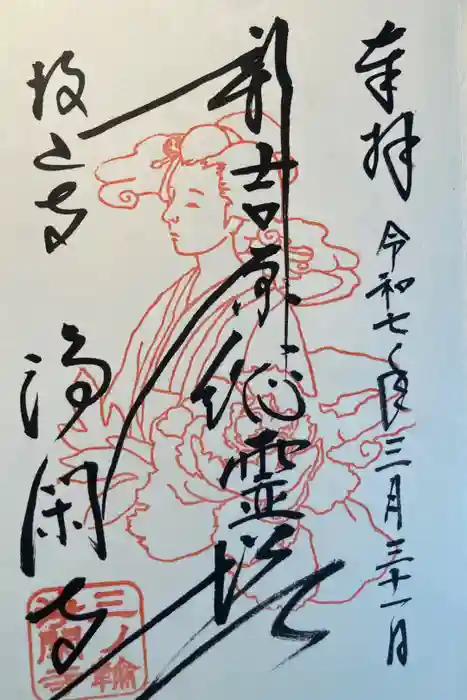 奉拝 令和七年三月三十一日
新吉原総霊塔
投込寺 浄閑寺
三ノ輪
浄閑寺